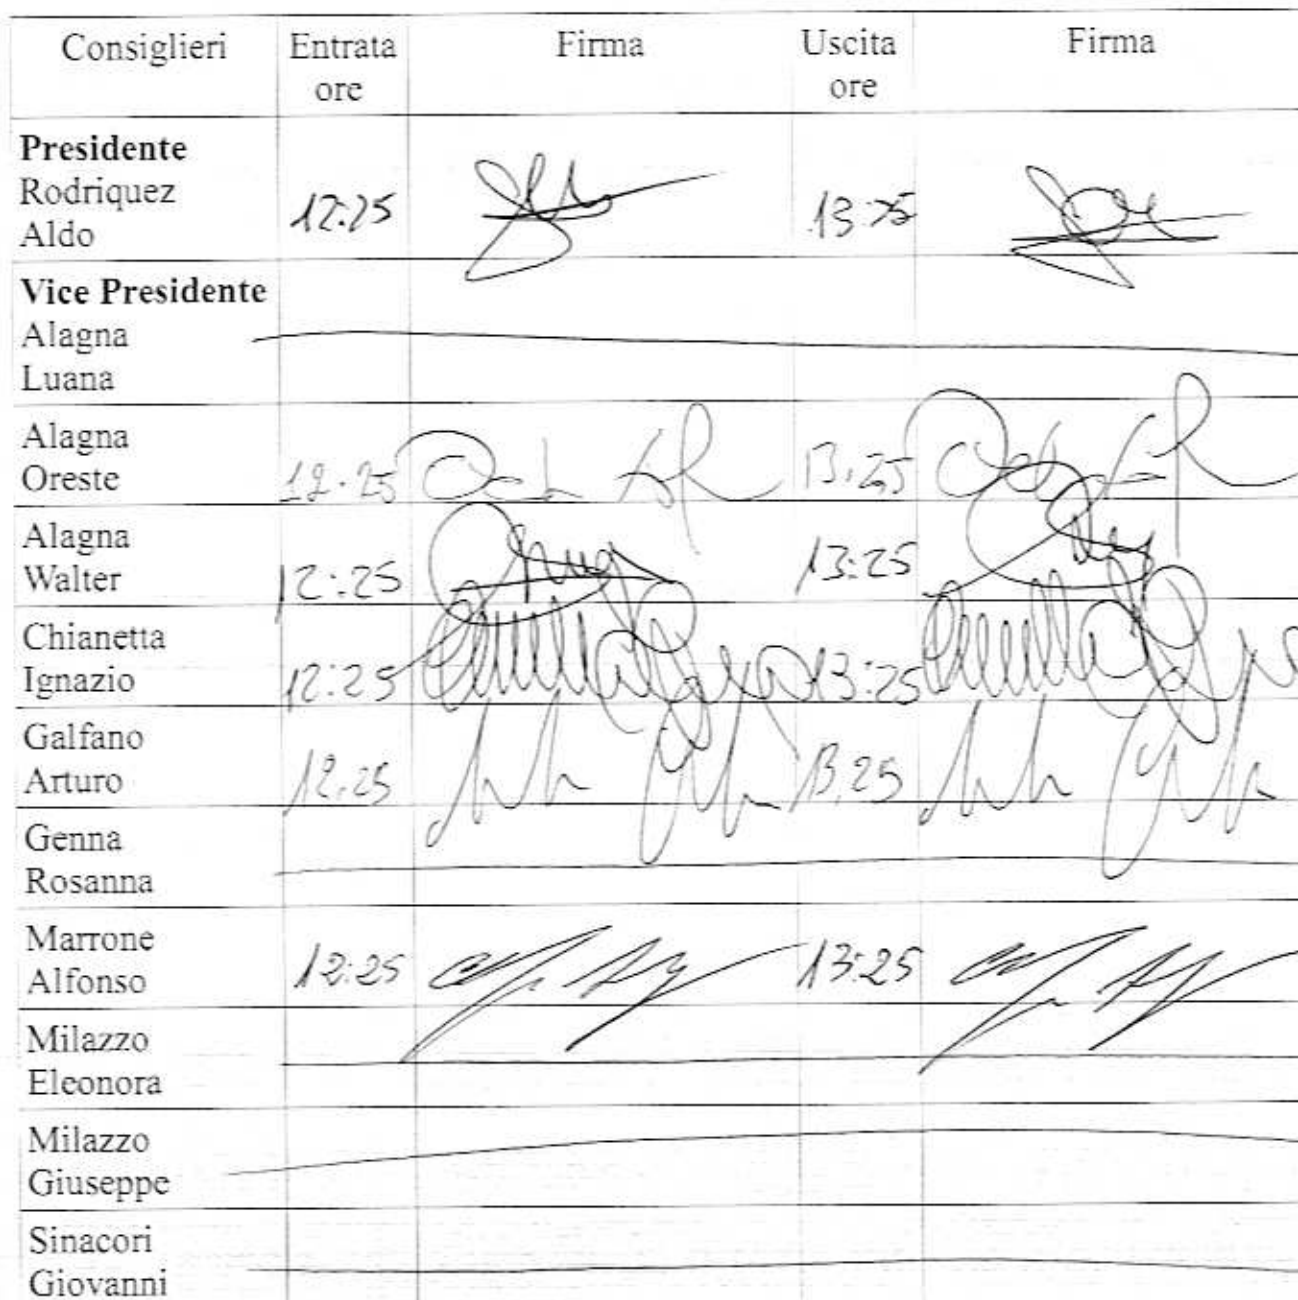 Consiglieri Entrata ore Firma Uscita ore Firma
Presidente
Rodriquez
Aldo 12:25 13:25
Vice Presidente
Alagna
Luana
Alagna
Oreste 12.25 13,25
Alagna
Walter 12:25 13:25
Chianetta
Ignazio 12:25 13:25
Galfano
Arturo 12,25 13,25
Genna
Rosanna
Marrone
Alfonso 12:25 13:25
Milazzo
Eleonora
Milazzo
Giuseppe
Sinacori
Giovanni